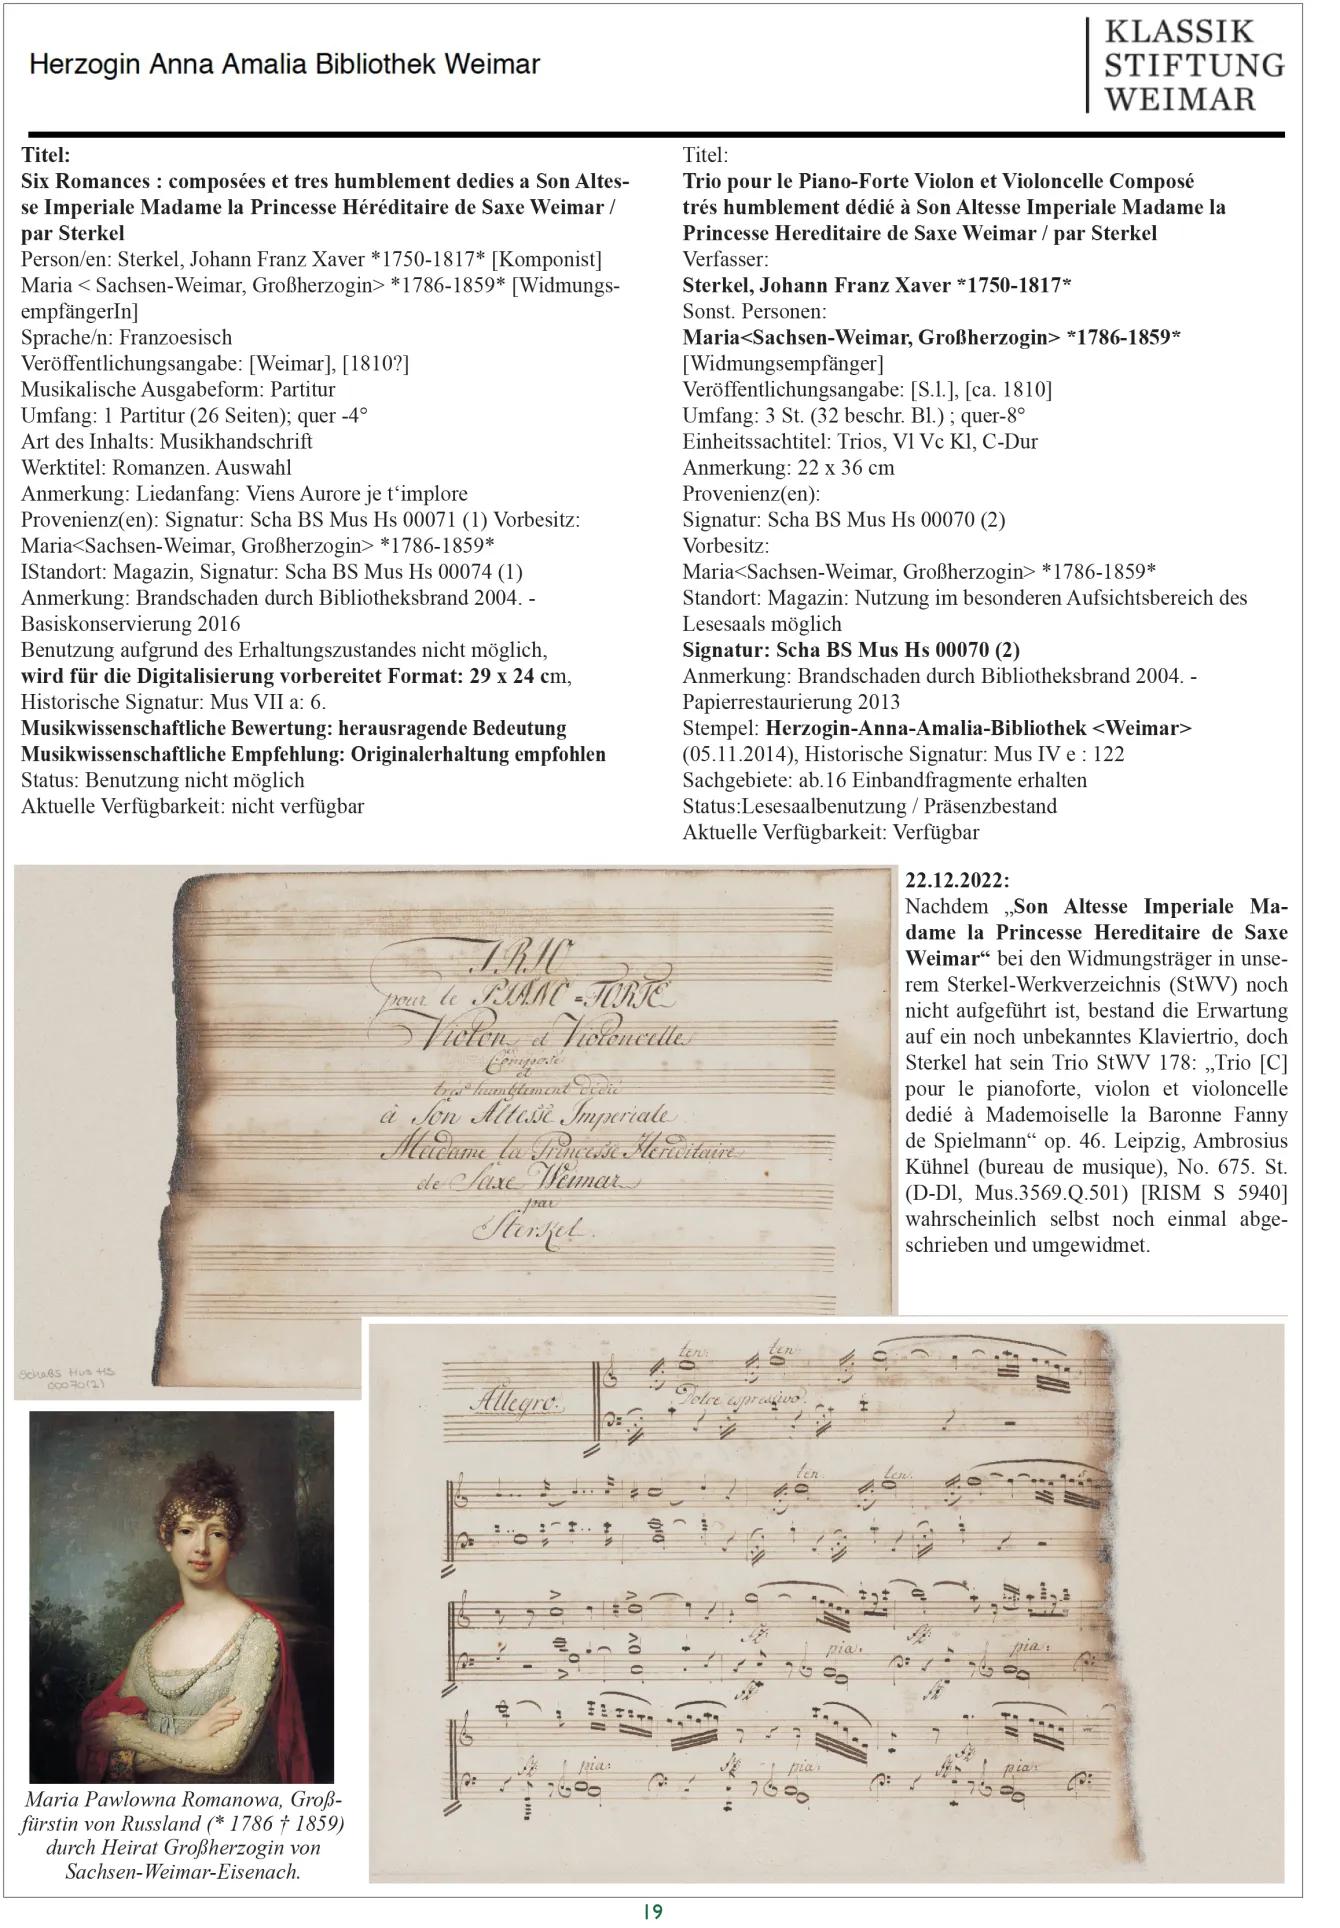 Herzogin Anna Amalia Bibliothek Weimar
KLASSIK
STIFTUNG
WEIMAR
Titel:
Six Romances : composées et tres humblement dedies a Son Altes-
se Imperiale Madame la Princesse Héréditaire de Saxe Weimar /
par Sterkel
Person/en: Sterkel, Johann Franz Xaver *1750-1817* [Komponist]
Maria < Sachsen-Weimar, Großherzogin> *1786-1859* [Widmungs-
empfängerIn]
Sprache/n: Franzoesisch
Veröffentlichungsangabe: [Weimar], [1810?]
Musikalische Ausgabeform: Partitur
Umfang: 1 Partitur (26 Seiten); quer -4°
Art des Inhalts: Musikhandschrift
Werktitel: Romanzen. Auswahl
Anmerkung: Liedanfang: Viens Aurore je t‘implore
Provenienz(en): Signatur: Scha BS Mus Hs 00071 (1) Vorbesitz:
Maria<Sachsen-Weimar, Großherzogin> *1786-1859*
IStandort: Magazin, Signatur: Scha BS Mus Hs 00074 (1)
Anmerkung: Brandschaden durch Bibliotheksbrand 2004. -
Basiskonservierung 2016
Benutzung aufgrund des Erhaltungszustandes nicht möglich,
wird für die Digitalisierung vorbereitet Format: 29 x 24 cm,
Historische Signatur: Mus VII a: 6.
Musikwissenschaftliche Bewertung: herausragende Bedeutung
Musikwissenschaftliche Empfehlung: Originalerhaltung empfohlen
Status: Benutzung nicht möglich
Aktuelle Verfügbarkeit: nicht verfügbar
Titel:
Trio pour le Piano-Forte Violon et Violoncelle Composé
trés humblement dédié à Son Altesse Imperiale Madame la
Princesse Hereditaire de Saxe Weimar / par Sterkel
Verfasser:
Sterkel, Johann Franz Xaver *1750-1817*
Sonst. Personen:
Maria<Sachsen-Weimar, Großherzogin> *1786-1859*
[Widmungsempfänger]
Veröffentlichungsangabe: [S.l.], [ca. 1810]
Umfang: 3 St. (32 beschr. Bl.) ; quer-8°
Einheitssachtitel: Trios, Vl Vc Kl, C-Dur
Anmerkung: 22 x 36 cm
Provenienz(en):
Signatur: Scha BS Mus Hs 00070 (2)
Vorbesitz:
Maria<Sachsen-Weimar, Großherzogin> *1786-1859*
Standort: Magazin: Nutzung im besonderen Aufsichtsbereich des
Lesesaals möglich
Signatur: Scha BS Mus Hs 00070 (2)
Anmerkung: Brandschaden durch Bibliotheksbrand 2004. -
Papierrestaurierung 2013
Stempel: Herzogin-Anna-Amalia-Bibliothek <Weimar>
(05.11.2014), Historische Signatur: Mus IV e : 122
Sachgebiete: ab.16 Einbandfragmente erhalten
Status:Lesesaalbenutzung / Präsenzbestand
Aktuelle Verfügbarkeit: Verfügbar
TRIO
pour le PIANO=FORTE
Violon et Violoncelle
Composé
et
tres humblement dédié
à Son Altesse Imperiale
Madame la Princesse Hereditaire
de Saxe Weimar
par
Sterkel.
SchaBS Mus HS
00070(2)
22.12.2022:
Nachdem „Son Altesse Imperiale Ma-
dame la Princesse Hereditaire de Saxe
Weimar“ bei den Widmungsträger in unse-
rem Sterkel-Werkverzeichnis (StWV) noch
nicht aufgeführt ist, bestand die Erwartung
auf ein noch unbekanntes Klaviertrio, doch
Sterkel hat sein Trio StWV 178: „Trio [C]
pour le pianoforte, violon et violoncelle
dedié à Mademoiselle la Baronne Fanny
de Spielmann“ op. 46. Leipzig, Ambrosius
Kühnel (bureau de musique), No. 675. St.
(D-Dl, Mus.3569.Q.501) [RISM S 5940]
wahrscheinlich selbst noch einmal abge-
schrieben und umgewidmet.
ten: ten:
Allegro. Dolce espressivo.
ten. ten.
pia: pia:
pia: pia: pia:
Maria Pawlowna Romanowa, Groß-
fürstin von Russland (* 1786 † 1859)
durch Heirat Großherzogin von
Sachsen-Weimar-Eisenach.
19